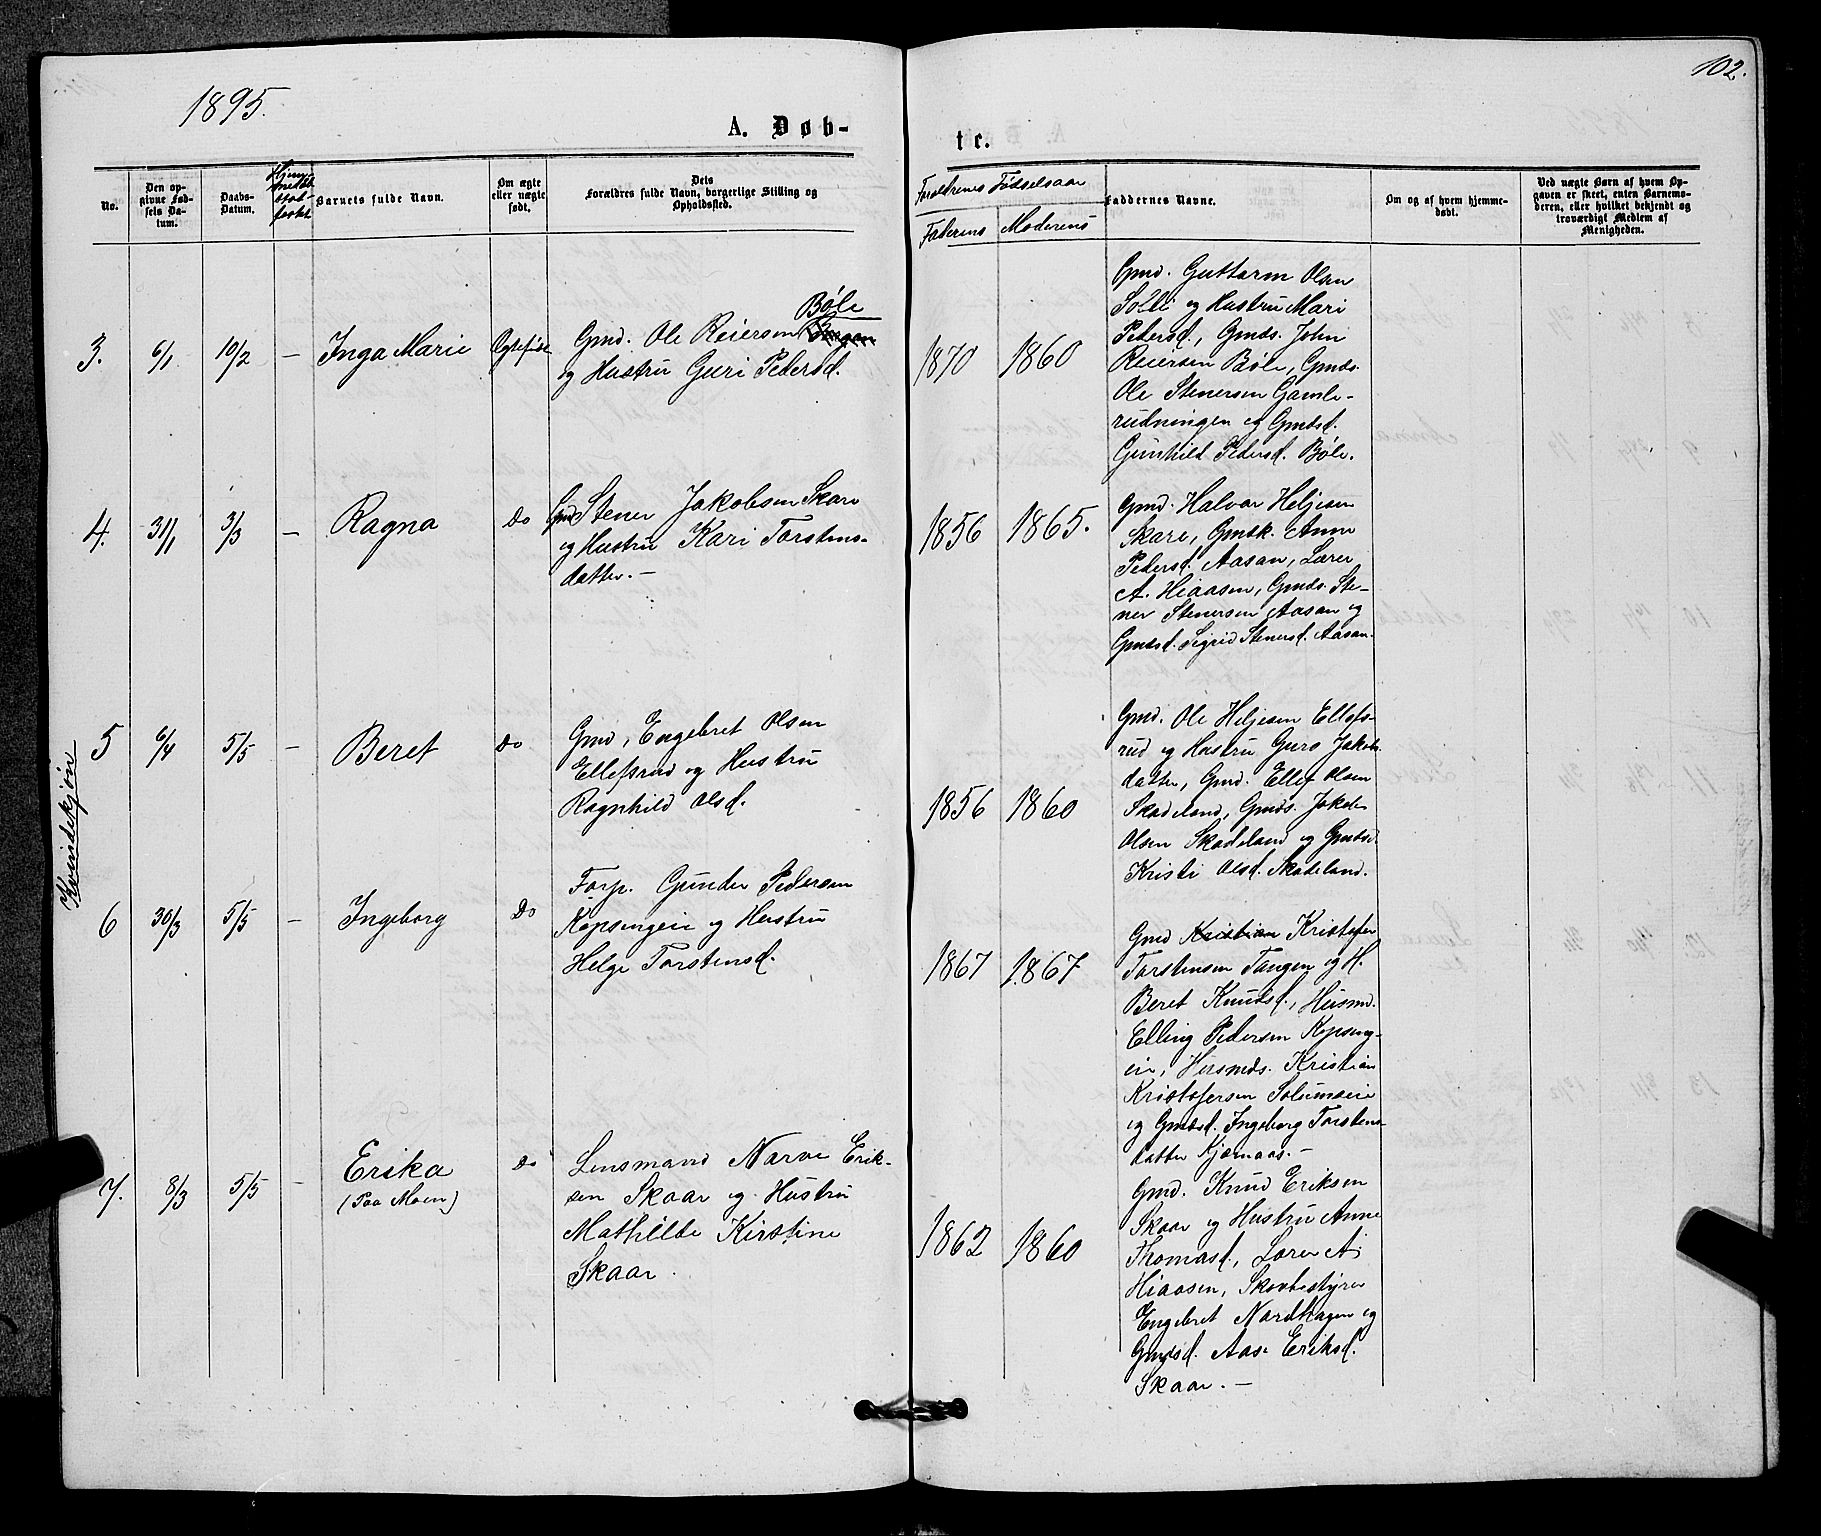 1895.
102.
A. Døb-
te.
No.
Den op-
givne Fød-
sels Da-
tum.
Daabs-
Datum.
Barnets fulde Navn.
Om ægte
eller nægte
født.
Dets
Forældres fulde Navn, borgerlige Stilling og
Opholdssted.
Forældrenes Fødselsaar
Faderens
Moderens
Faddernes Navne.
Om og af hvem hjemme-
døbt.
Ved nægte Børn af hvem Op-
gaven er skeet, enten Barnemo-
deren, eller hvilket bekjendt og
troværdigt Medlem af
Menigheden.
Kvindekjøn
3.
6/1
10/2
—
Inga Marie
Ægtefødt
Bøle
Gmd. Ole Reiersen
og Hustru Guri Pedersd.
1870
1860
Gmd. Guttorm Olsen
og Hustru Mari
Pedersd., Gmds. John
Reiersen Bøle, Gmds.
Ole Stenersen Gamle-
rudningen og Gmdsd.
Gunhild Pedersd. Bøle.
4.
31/1
3/3
—
Ragna
Do
Gmd Stener Jakobsen Skare
og Hustru Kari Torstens-
datter. —
1856
1865.
Gmd. Halvor Heljesen
Skare, Gmdk. Anne
Pedersd. Aasan, Lærer
A. Hiaasen, Gmds. Ste-
ner Stenersen Aasan og
Gmdsd. Sigrid Stenersd. Aasan.
5
6/4
5/5
—
Beret
Do
Gmd, Engebret Olsen
Ellefsrud og Hustru
Ragnhild Olsd.
1856
1860
Gmd. Ole Heljesen Ellefs-
rud og Hustru Guro Jakobs-
datter, Gmd. Ellef Olsen
Skadeland, Gmds. Jakob
Olsen Skadeland og Gmdsd.
Kristi Olsd. Skadeland.
6
30/3
5/5
—
Ingeborg
Do
Forp. Gunder Pedersen
Kopsengeie og Hustru
Helge Torstensd.
1867
1867
Gmd Kristian Kristofer
Torstensen Tangen og H.
Beret Knudsd., Husmd.
Elling Pedersen Kopseng-
eie, Husmds. Kristian
Kristofersen Solumseie
og Gmdsd. Ingeborg Torstens-
datter Kjørnaas. —
7.
8/3
5/5
—
Erika
(Paa Moen)
Do
Lensmand Narve Erik-
sen Skaar og Hustru
Mathilde Kirstine
Skaar.
1862
1860
Gmd. Knud Eriksen
Skaar og Hustru Anne
Thomasd., Lærer A.
Hiaasen, Skovbestyrer
Engebret Nordhagen og
Gmdsd. Aase Eriksd.
Skaar. —